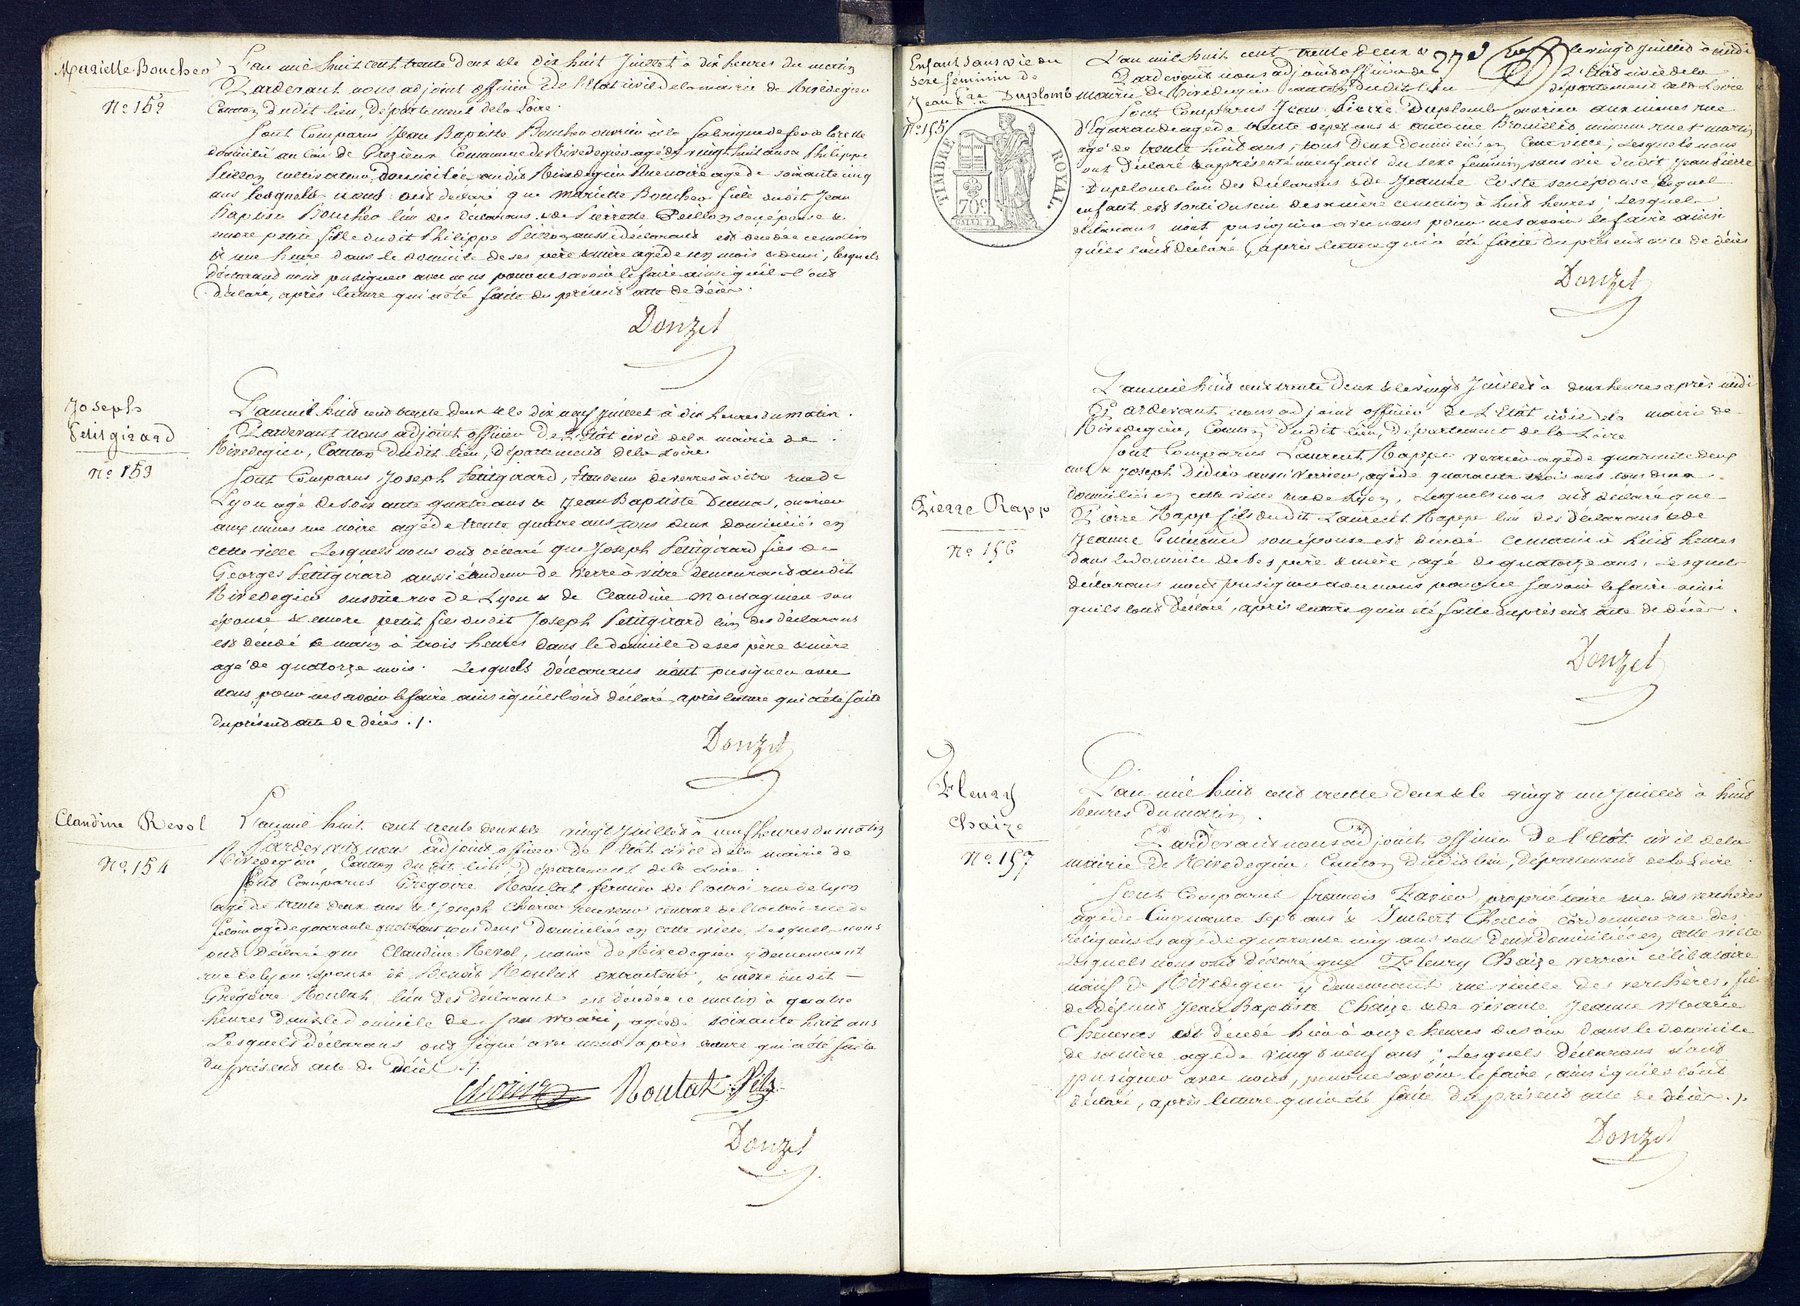 Mariette Boucher
N° 152
L'an mil huit cent trente deux & le dix huit Juillet à dix heures du matin
Pardevant nous adjoint officier de l'Etat civil de la mairie de Rivedegier
Canton dudit lieu, Département de la Loire.
Sont Comparus Jean Baptiste Boucher ouvrier à la fabrique de
domicilié au lieu de Commune de Rivedegier agé de vingt huit ans & Philippe
Peillon cultivateur, domicilié audit Rivedegier Rue noire agé de soixante cinq
ans lesquels nous ont déclaré que Mariette Boucher fille dudit Jean
Baptiste Boucher l'un des déclarans & de Pierrette Peillon son épouse &
encore petite fille dudit Philippe Peillon aussi déclarant est décédée ce matin
à une heure dans le domicile de ses père & mère agée de un mois & demi, lesquels
déclarans n'ont pu signer avec nous pour ne savoir le faire ainsi qu'il l'ont
déclaré, après lecture qui a été faite du présent acte de décès.
Donzel
Joseph
Petitgirard
N° 153
L'an mil huit cent trente deux & le dix neuf Juillet à dix heures du matin.
Pardevant nous adjoint officier de l'Etat civil de la mairie de
Rivedegier, Canton dudit lieu, département de la Loire
Sont Comparus Joseph Petitgirard, Etendeur de verres à vitre rue de
Lyon agé de soixante quatre ans & Jean Baptiste Dumas, ouvrier
aux mines rue noire agé de trente quatre ans, tous deux domiciliés en
cette ville Lesquels nous ont déclaré que Joseph Petitgirard fils de
Georges Petitgirard aussi étendeur de verre à vitre demeurant audit
Rivedegier susdite rue de Lyon & de Claudine Montagneu son
épouse & encore petit fils dudit Joseph Petitgirard l'un des déclarans
est décédé ce matin à trois heures dans le domicile de ses père & mère
agé de quatorze mois. Lesquels déclarans n'ont pu signer avec
nous, pour ne savoir le faire ainsi qu'ils l'ont déclaré, après lecture qui a été faite
du présent acte de décès ./.
Donzel
Claudine Revol
N° 154
L'an mil huit cent trente deux & le vingt Juillet à neuf heures du matin
Pardevant nous adjoint officier de l'Etat civil de la mairie de
Rivedegier Canton dudit lieu, Département de la Loire.
Sont Comparus Grégoire Roulat fermier de l'octroi rue de Lyon
agé de trente deux ans & Joseph receveur central de l'octroi rue de
agé de quarante ans tous deux domiciliés en cette ville, Lesquels nous
ont déclaré que Claudine Revol, native de Rivedegier y demeurant
rue de Lyon épouse de Benoit Roulat extracteur, & mère dudit
Grégoire Roulat l'un des déclarant est décédée ce matin à quatre
heures dans le domicile de son mari, agée de soixante huit ans
Lesquels déclarans ont signé avec nous après lecture qui a été faite
du présent acte de décès ./.
Roulat fils
Donzel
Enfant sans vie du
sexe féminin de
Jean Pre Duplomb
N° 155
TIMBRE ROYAL.
70c
L'an mil huit cent trente deux & le vingt Juillet à midi
Pardevant nous adjoint officier de l'Etat civil de la
mairie de Rivedegier canton dudit lieu département de la Loire
Sont Comparus Jean Pierre Duplomb ouvrier aux mines rue
d'Egarande agé de trente sept ans & Antoine mineur rue St martin
agé de trente huit ans, tous deux domiciliés en cette ville, Lesquels nous
ont déclaré & présenté un enfant du sexe féminin sans vie dudit Jean Pierre
Duplomb l'un des déclarans & de Jeanne Coste son épouse, Lequel
enfant est sorti du sein de sa mère ce matin à huit heures; Lesquels
déclarans n'ont pu signer avec nous pour ne savoir le faire ainsi
qu'ils l'ont déclaré, après lecture qui a été faite du présent acte de décès
Donzel
Pierre Rapp
N° 156
L'an mil huit cent trente deux & le vingt Juillet à deux heures après midi
Pardevant nous adjoint officier de l'Etat civil de la mairie de
Rivedegier, Canton dudit lieu, Département de la Loire
Sont Comparus Laurent Rapp verrier agé de quarante deux
ans & Joseph Didier aussi verrier, agé de quarante trois ans tous deux
domiciliés en cette ville rue de Lyon, Lesquels nous ont déclaré que
Pierre Rapp fils dudit Laurent Rapp l'un des déclarans & de
Jeanne son épouse est décédé ce matin à huit heures
dans le domicile de ses père & mère, agé de quatorze ans; Lesquels
déclarans n'ont pu signer avec nous pour ne savoir le faire ainsi
qu'ils l'ont déclaré, après lecture qui a été faite du présent acte de décès.
Donzel
Fleury
Chaize
N° 157
L'an mil huit cent trente deux & le vingt un Juillet à huit
heures du matin.
Pardevant nous adjoint officier de l'Etat civil de la
mairie de Rivedegier, Canton dudit lieu, Département de la Loire
Sont Comparus François propriétaire rue des verchères
agé de Cinquante sept ans & Imbert cordonnier rue des
religieuses agé de quarante cinq ans tous deux domiciliés en cette ville
Lesquels nous ont déclaré que Fleury Chaize verrier célibataire
natif de Rivedegier y demeurant rue vieille des verchères, fils
de défunt Jean Baptiste Chaize & de vivante Jeanne Marie
est décédé hier à onze heures du soir dans le domicile
de sa mère agé de vingt neuf ans; Lesquels déclarans n'ont
pu signer avec nous, pour ne savoir le faire, ainsi qu'ils l'ont
déclaré, après lecture qui a été faite du présent acte de décès ./.
Donzel